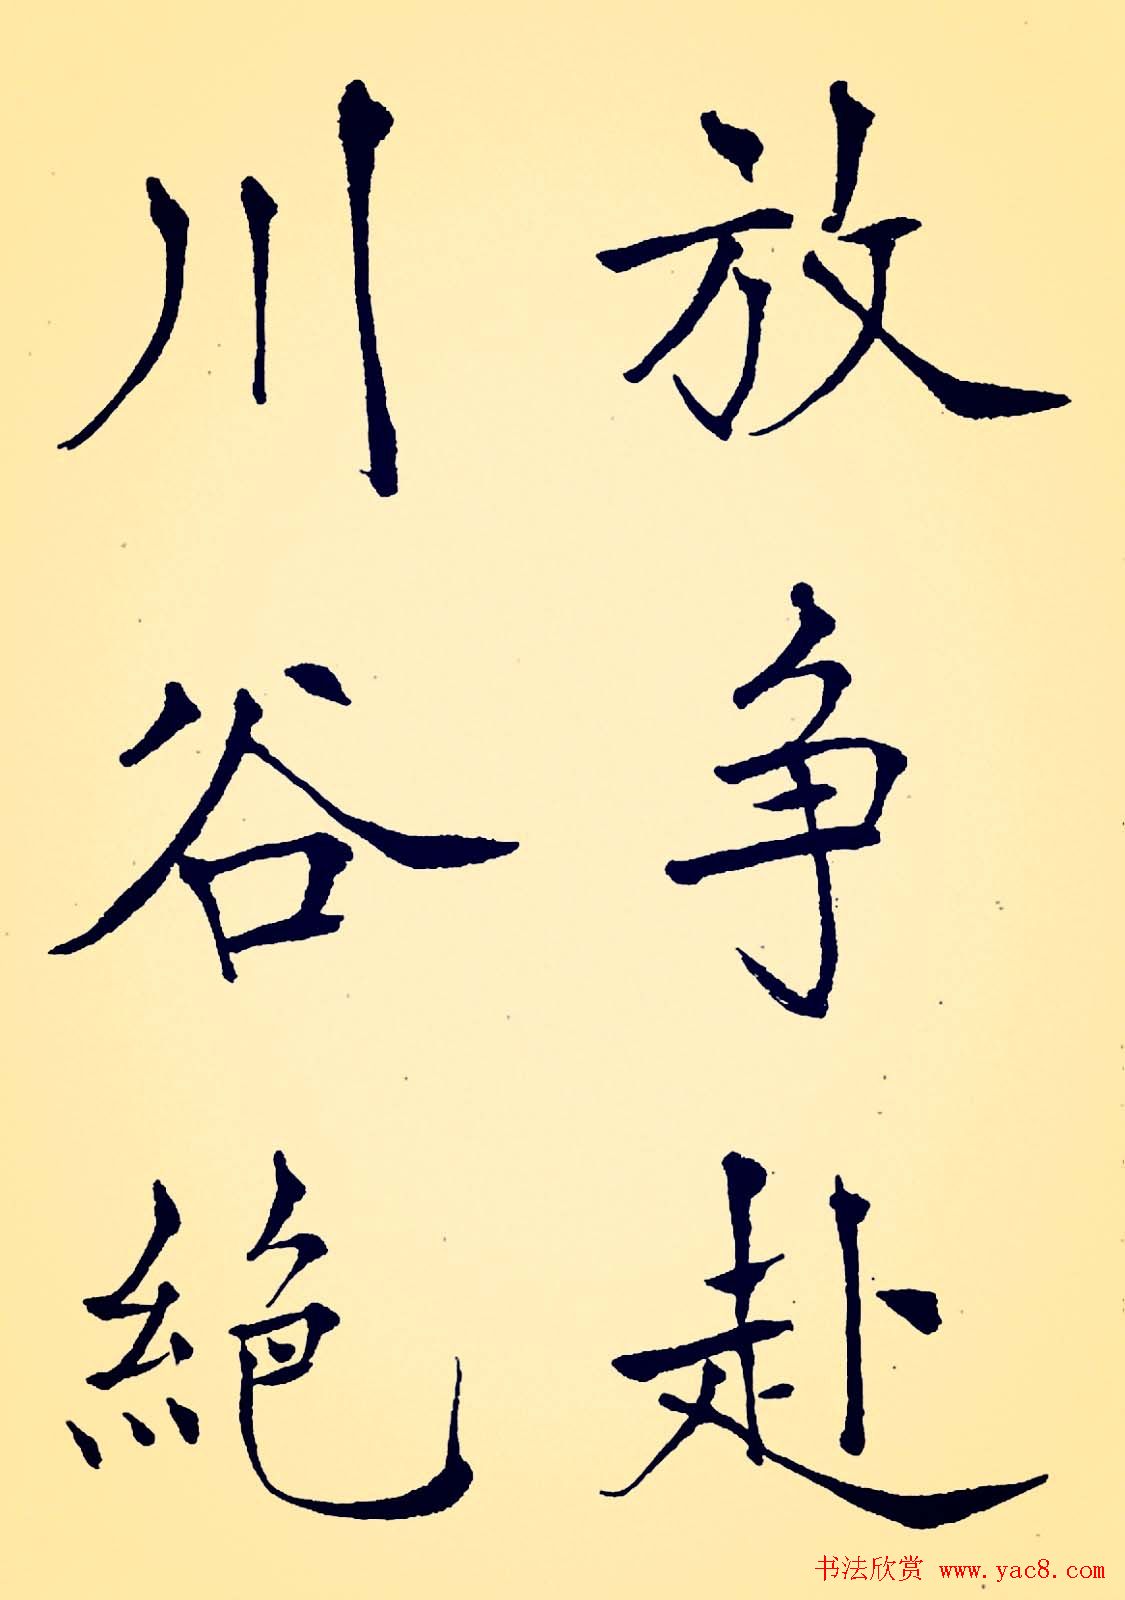 放争赴
川谷絕
书法欣赏 www.yac8.com